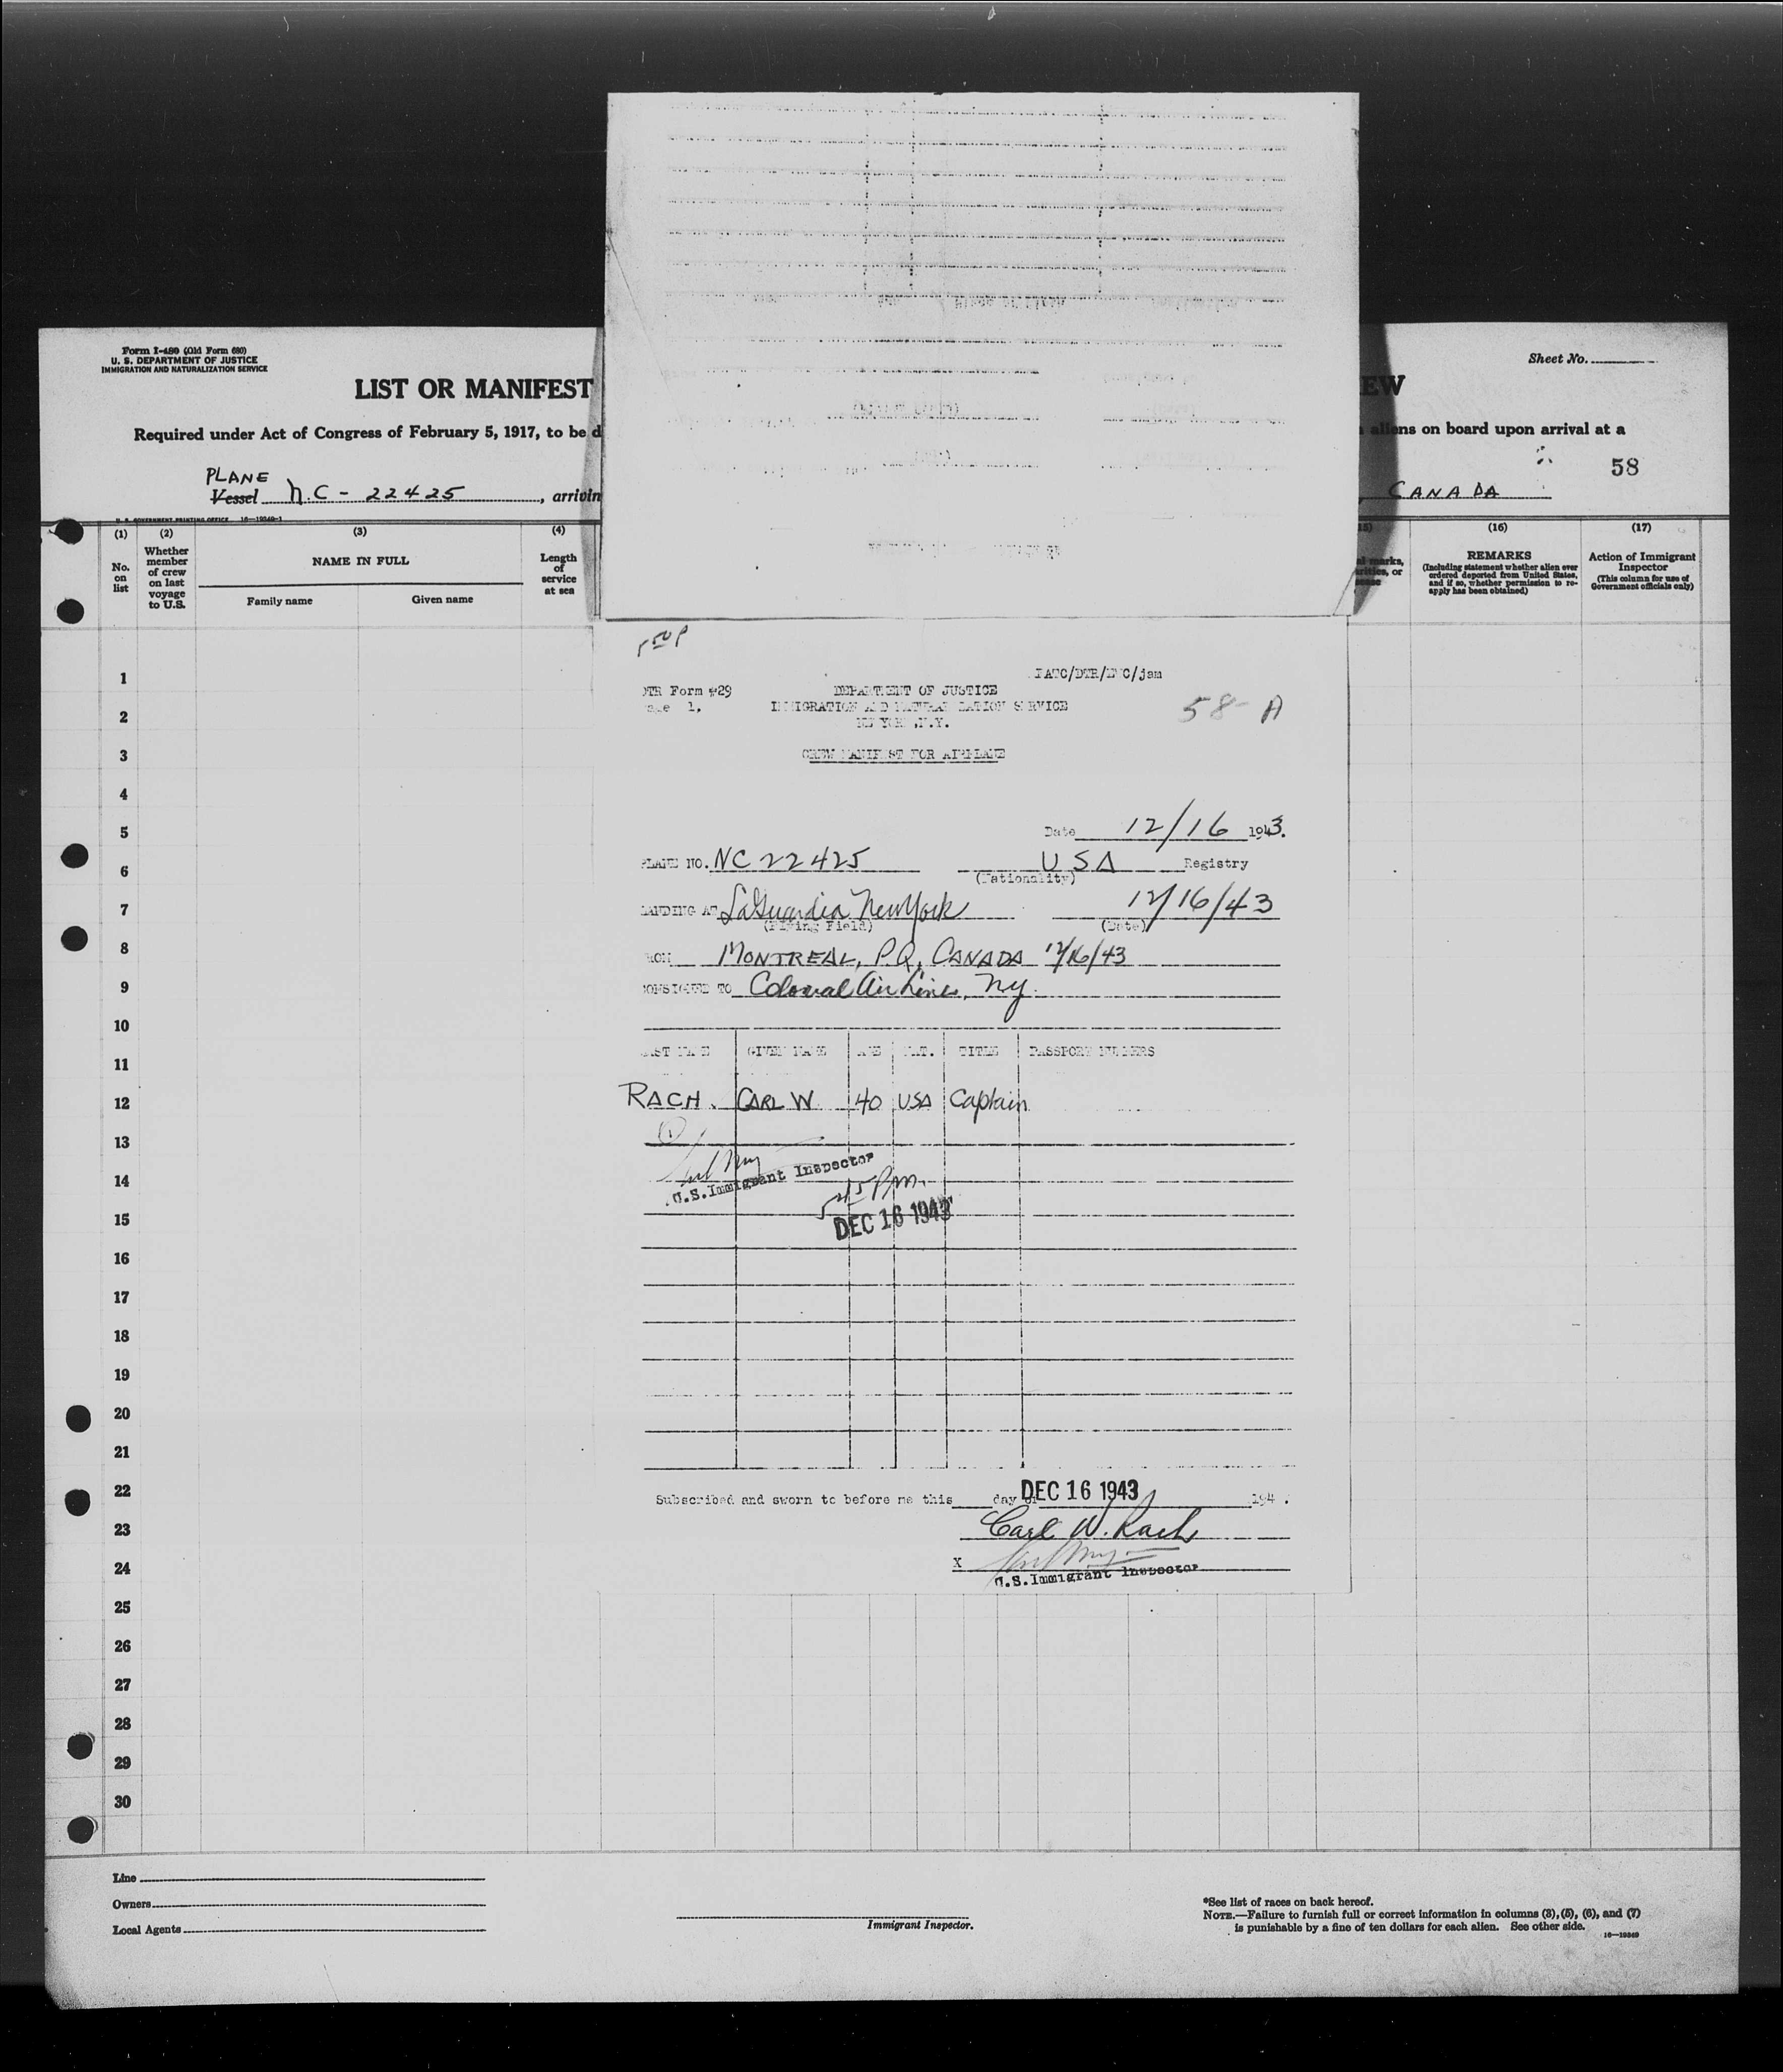 Form I-480 (Old Form 680)
U. S. DEPARTMENT OF JUSTICE
IMMIGRATION AND NATURALIZATION SERVICE
Sheet No.
LIST OR MANIFEST
EW
Required under Act of Congress of February 5, 1917, to be d
aliens on board upon arrival at a
58
PLANE
Vessel N.C - 22425, arrivin
CANADA
U. S. GOVERNMENT PRINTING OFFICE 16—19349-1
(1) (2) (3) (4) (15) (16) (17)
No. on list
Whether member of crew on last voyage to U.S.
NAME IN FULL
Family name Given name
Length of service at sea
REMARKS
(Including statement whether alien ever ordered deported from United States, and if so, whether permission to re-apply has been obtained)
Action of Immigrant Inspector
(This column for use of Government officials only)
DTR Form #29
DEPARTMENT OF JUSTICE
IMMIGRATION AND NATURALIZATION SERVICE
NEW YORK, N.Y.
58-A
CREW MANIFEST FOR AIRPLANE
Date 12/16 1943.
PLANE NO. NC 22425 USA Registry
(Nationality)
LANDING AT LaGuardia New York 12/16/43
(Flying Field) (Date)
ROM MONTREAL, P.Q, CANADA 12/16/43
CONSIGNED TO Colonial Air Lines, NY.
LAST NAME GIVEN NAME AGE NAT. TITLE PASSPORT NUMBERS
RACH. CARL W. 40 USA Captain
U.S. Immigrant Inspector
545 Pm.
DEC 16 1943
Subscribed and sworn to before me this day of DEC 16 1943 194 .
Carl W. Rach
X
U.S. Immigrant Inspector
1
2
3
4
5
6
7
8
9
10
11
12
13
14
15
16
17
18
19
20
21
22
23
24
25
26
27
28
29
30
Line
Owners
Local Agents
Immigrant Inspector.
*See list of races on back hereof.
NOTE.—Failure to furnish full or correct information in columns (3), (5), (6), and (7)
is punishable by a fine of ten dollars for each alien. See other side.
16—19349